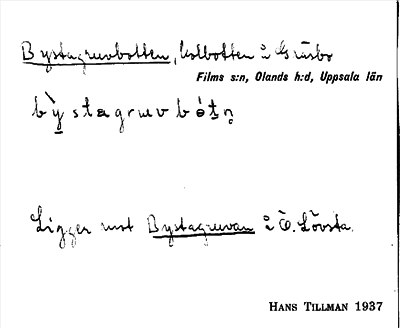 Bystagruvbotten, kolbotten i Gräsbo
Films s:n, Olands h:d, Uppsala län
bỳstagrɯvbótn̥
Ligger mot Bystagruvan i Ö. Lövsta.
HANS TILLMAN 1937